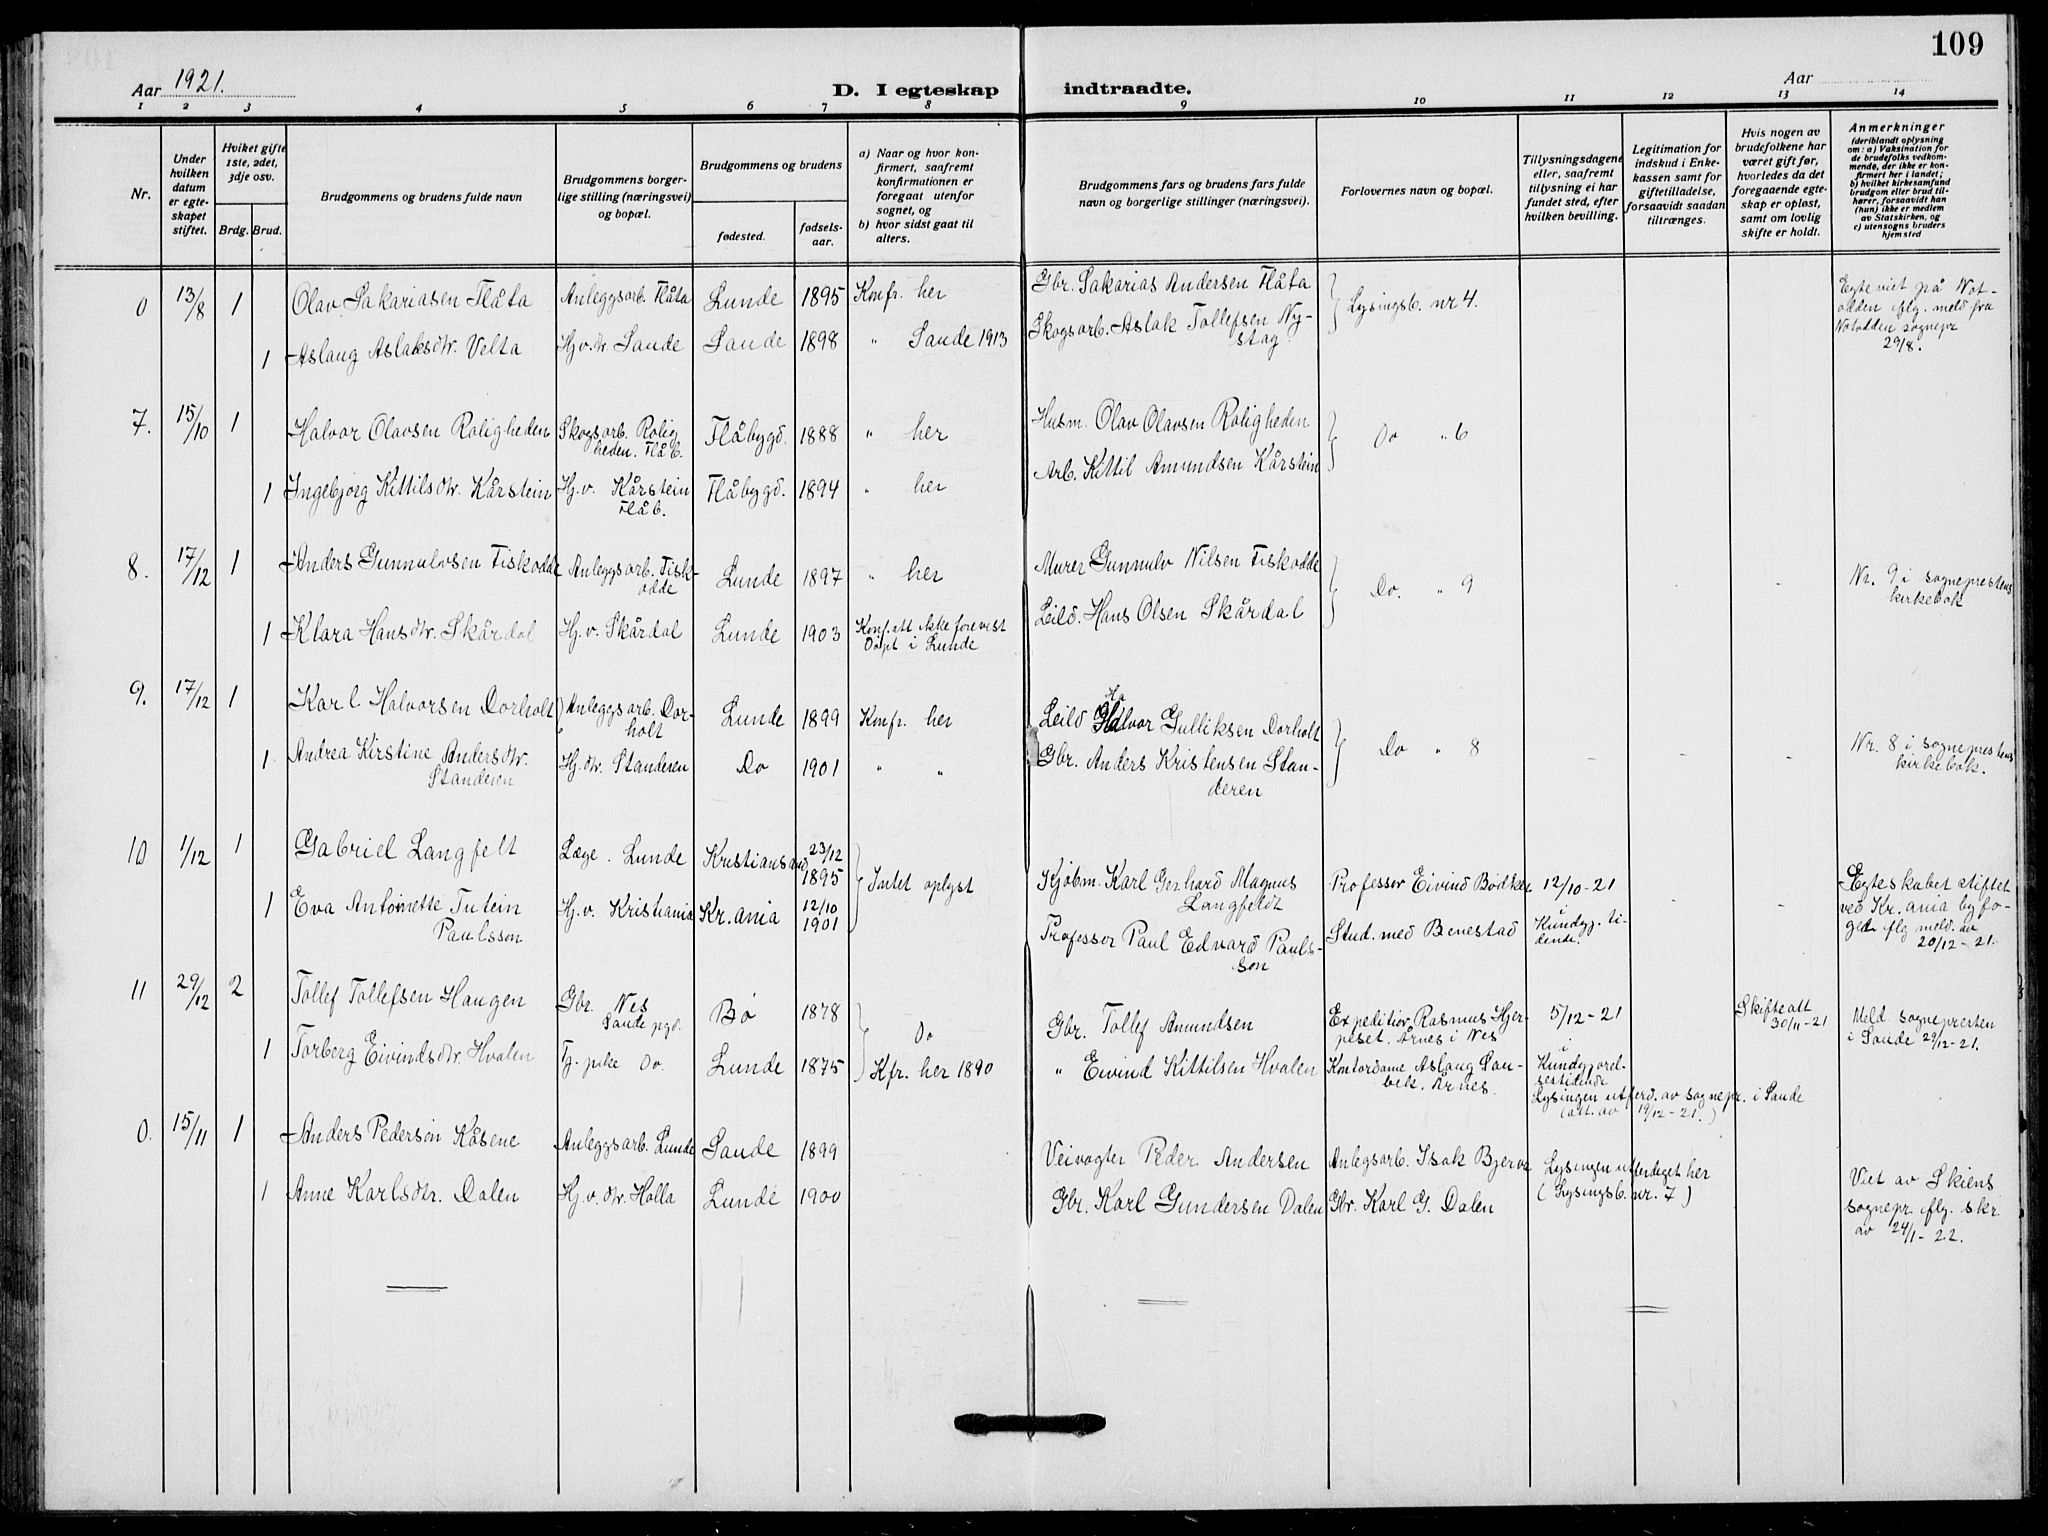 109
Aar 1921.
D. I egteskap indtraadte.
Aar
1 2 3 4 5 6 7 8 9 10 11 12 13 14
Nr.
Under hvilken datum er egteskapet stiftet.
Hviket gifte 1ste, 2det, 3dje osv.
Brdg. Brud.
Brudgommens og brudens fulde navn
Brudgommens borgerlige stilling (næringsvei) og bopæl.
Brudgommens og brudens
fødested.
fødselsaar.
a) Naar og hvor konfirmert, saafremt konfirmationen er foregaat utenfor sognet, og
b) hvor sidst gaat til alters.
Brudgommens fars og brudens fars fulde navn og borgerlige stillinger (næringsvei).
Forlovernes navn og bopæl.
Tillysningsdagene eller, saafremt tillysning ei har fundet sted, efter hvilken bevilling.
Legitimation for indskud i Enkekassen samt for giftetilladelse, forsaavidt saadan tiltrænges.
Hvis nogen av brudefolkene har været gift før, hvorledes da det foregaaende egteskap er opløst, samt om lovlig skifte er holdt.
Anmerkninger (deriblandt oplysning om: a) Vaksination for de brudefolks vedkommende, der ikke er konfirmert her i landet; b) hvilket kirkesamfund brudgom eller brud tilhører, forsaavidt han (hun) ikke er medlem av Statskirken, og c) utensogns bruders hjemsted
0 13/8 1 Olav Sakariasen Flåta Anleggsarb. Flåta Lunde 1895 Konfr. her Gbr. Sakarias Andersen Flåta Lysingsb. nr 4. Egteviet på Notodden iflg. meld fra Notodden sognepr 29/8.
1 Aslaug Aslaksdtr. Velta Hj.v. dtr. Sande Sande 1898 " Sande 1913 Skogsarb. Aslak Tollefsen Nystag
7. 15/10 1 Halvor Olavsen Roligheden Skogsarb. Roligheden. Flåb. Flåbygd. 1888 " her Husm. Olav Olavsen Roligheden Do " 6
1 Ingebjørg Kittilsdtr. Kårstein Hj.v. Kårstein Flåb. Flåbygd. 1894 " her Arb. Kittil Amundsen Kårstein
8. 17/12 1 Anders Gunnulvsen Fiskodde Anleggsarb. Fiskodde Lunde 1897 " her Murer Gunnulv Nilsen Fiskodde Do. " 9 - - Nr. 9 i sogneprestens kirkebok
1 Klara Hansdtr. Skårdal Hj.v. Skårdal Lunde 1903 Konf.att ikke forevist Døpt i Lunde Leild. Hans Olsen Skårdal
9. 17/12 1 Karl Halvorsen Dorholt Anleggsarb. Dorholt Lunde 1899 Konfr. her Leild Halvor Gulliksen Dorholt Do " 8 - - - Nr. 8 i sogneprestens kirkebok.
1 Andrea Kirstine Andersdtr. Standeren Hj. dtr. Standeren Do 1901 " " Gbr. Anders Kristensen Standeren
10 1/12 1 Gabriel Langfelt Læge. Lunde Kristiansand 23/12 1895 Intet oplyst Kjøbm. Karl Gerhard Magnus Langfeldt Professor Eivind Bødker 12/10-21 Egteskabet stiftet ved Kr.ania byfogde iflg meld. av 20/12-21.
1 Eva Antoinette Tutein Paulsson Hj.v. Kristiania Kr.ania 12/10 1901 Professor Paul Edvard Paulsson Stud. med Benestad Kundgj. tidende.
11 29/12 2 Tollef Tollefsen Haugen Gbr. Nes Sande pgd. Bø 1878 Do Gbr. Tollef Amundsen Expeditør Rasmus Hjerpeset. Årnes i Nes 5/12-21 Skifteatt 30/11-21 Meld sognepresten i Sande 29/12-21.
1 Torberg Eivindsdtr. Hvalen Tj. pike Do. Lunde 1875 Kfr. her 1890 " Eivind Kittilsen Hvalen Kontordame Aslaug Sanbek. Årnes. i Kundgjørelsestidende
Lysingen utferd. av sognepr. i Sande (att. av 19/12-21.)
0. 15/11 1 Anders Pedersøn Kåsene Anleggsarb. Lunde Sande 1899 Veivogter Peder Andersen Anlegsarb. Isak Bjerva Lysingen utferdiget her (Lysingsb. nr. 7) Viet av Skiens sognepr. iflg. skr av 24/1-22.
1 Anne Karlsdtr. Dalen Hj.v. dtr. Holla Lunde 1900 Gbr. Karl Gundersen Dalen Gbr. Karl G. Dalen